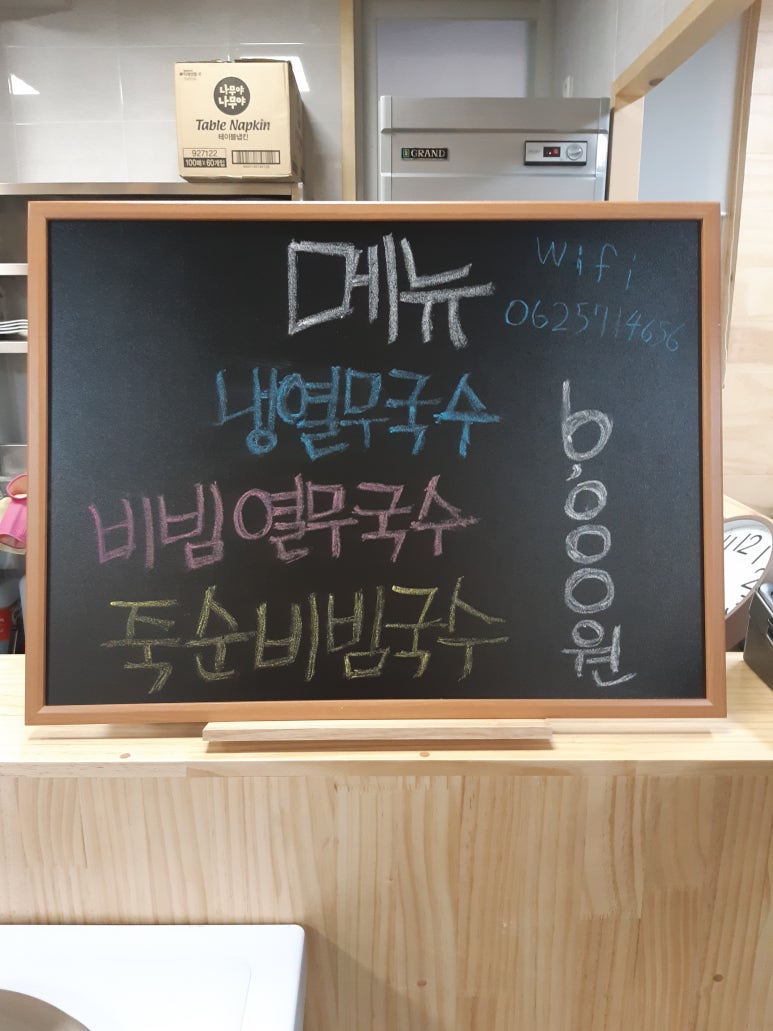 나무야
나무야
Table Napkin
테이블냅킨
927122
100매×60개입
GRAND
메뉴
wifi
0625714656
냉열무국수
비빔열무국수
죽순비빔국수
6,000원
12
2